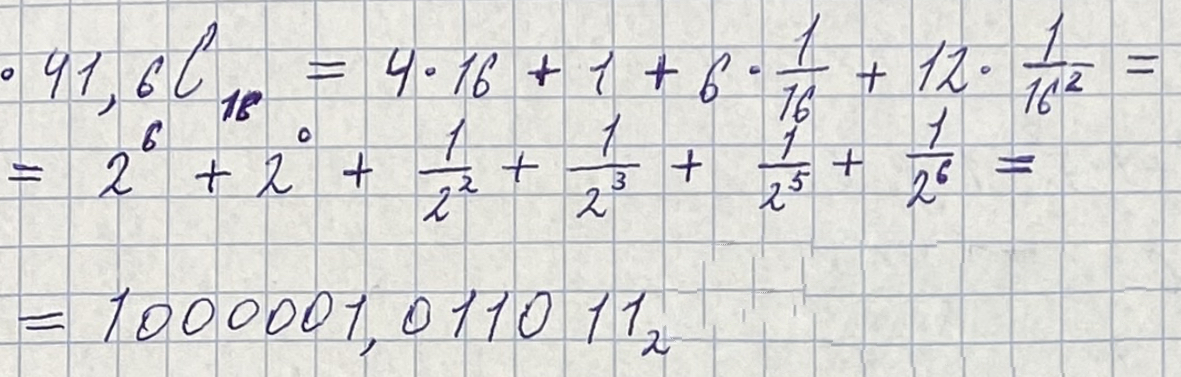 • 41,6C₁₆ = 4·16 + 1 + 6·1/16 + 12·1/16² =
= 2⁶ + 2⁰ + 1/2² + 1/2³ + 1/2⁵ + 1/2⁶ =
= 1000001,011011₂